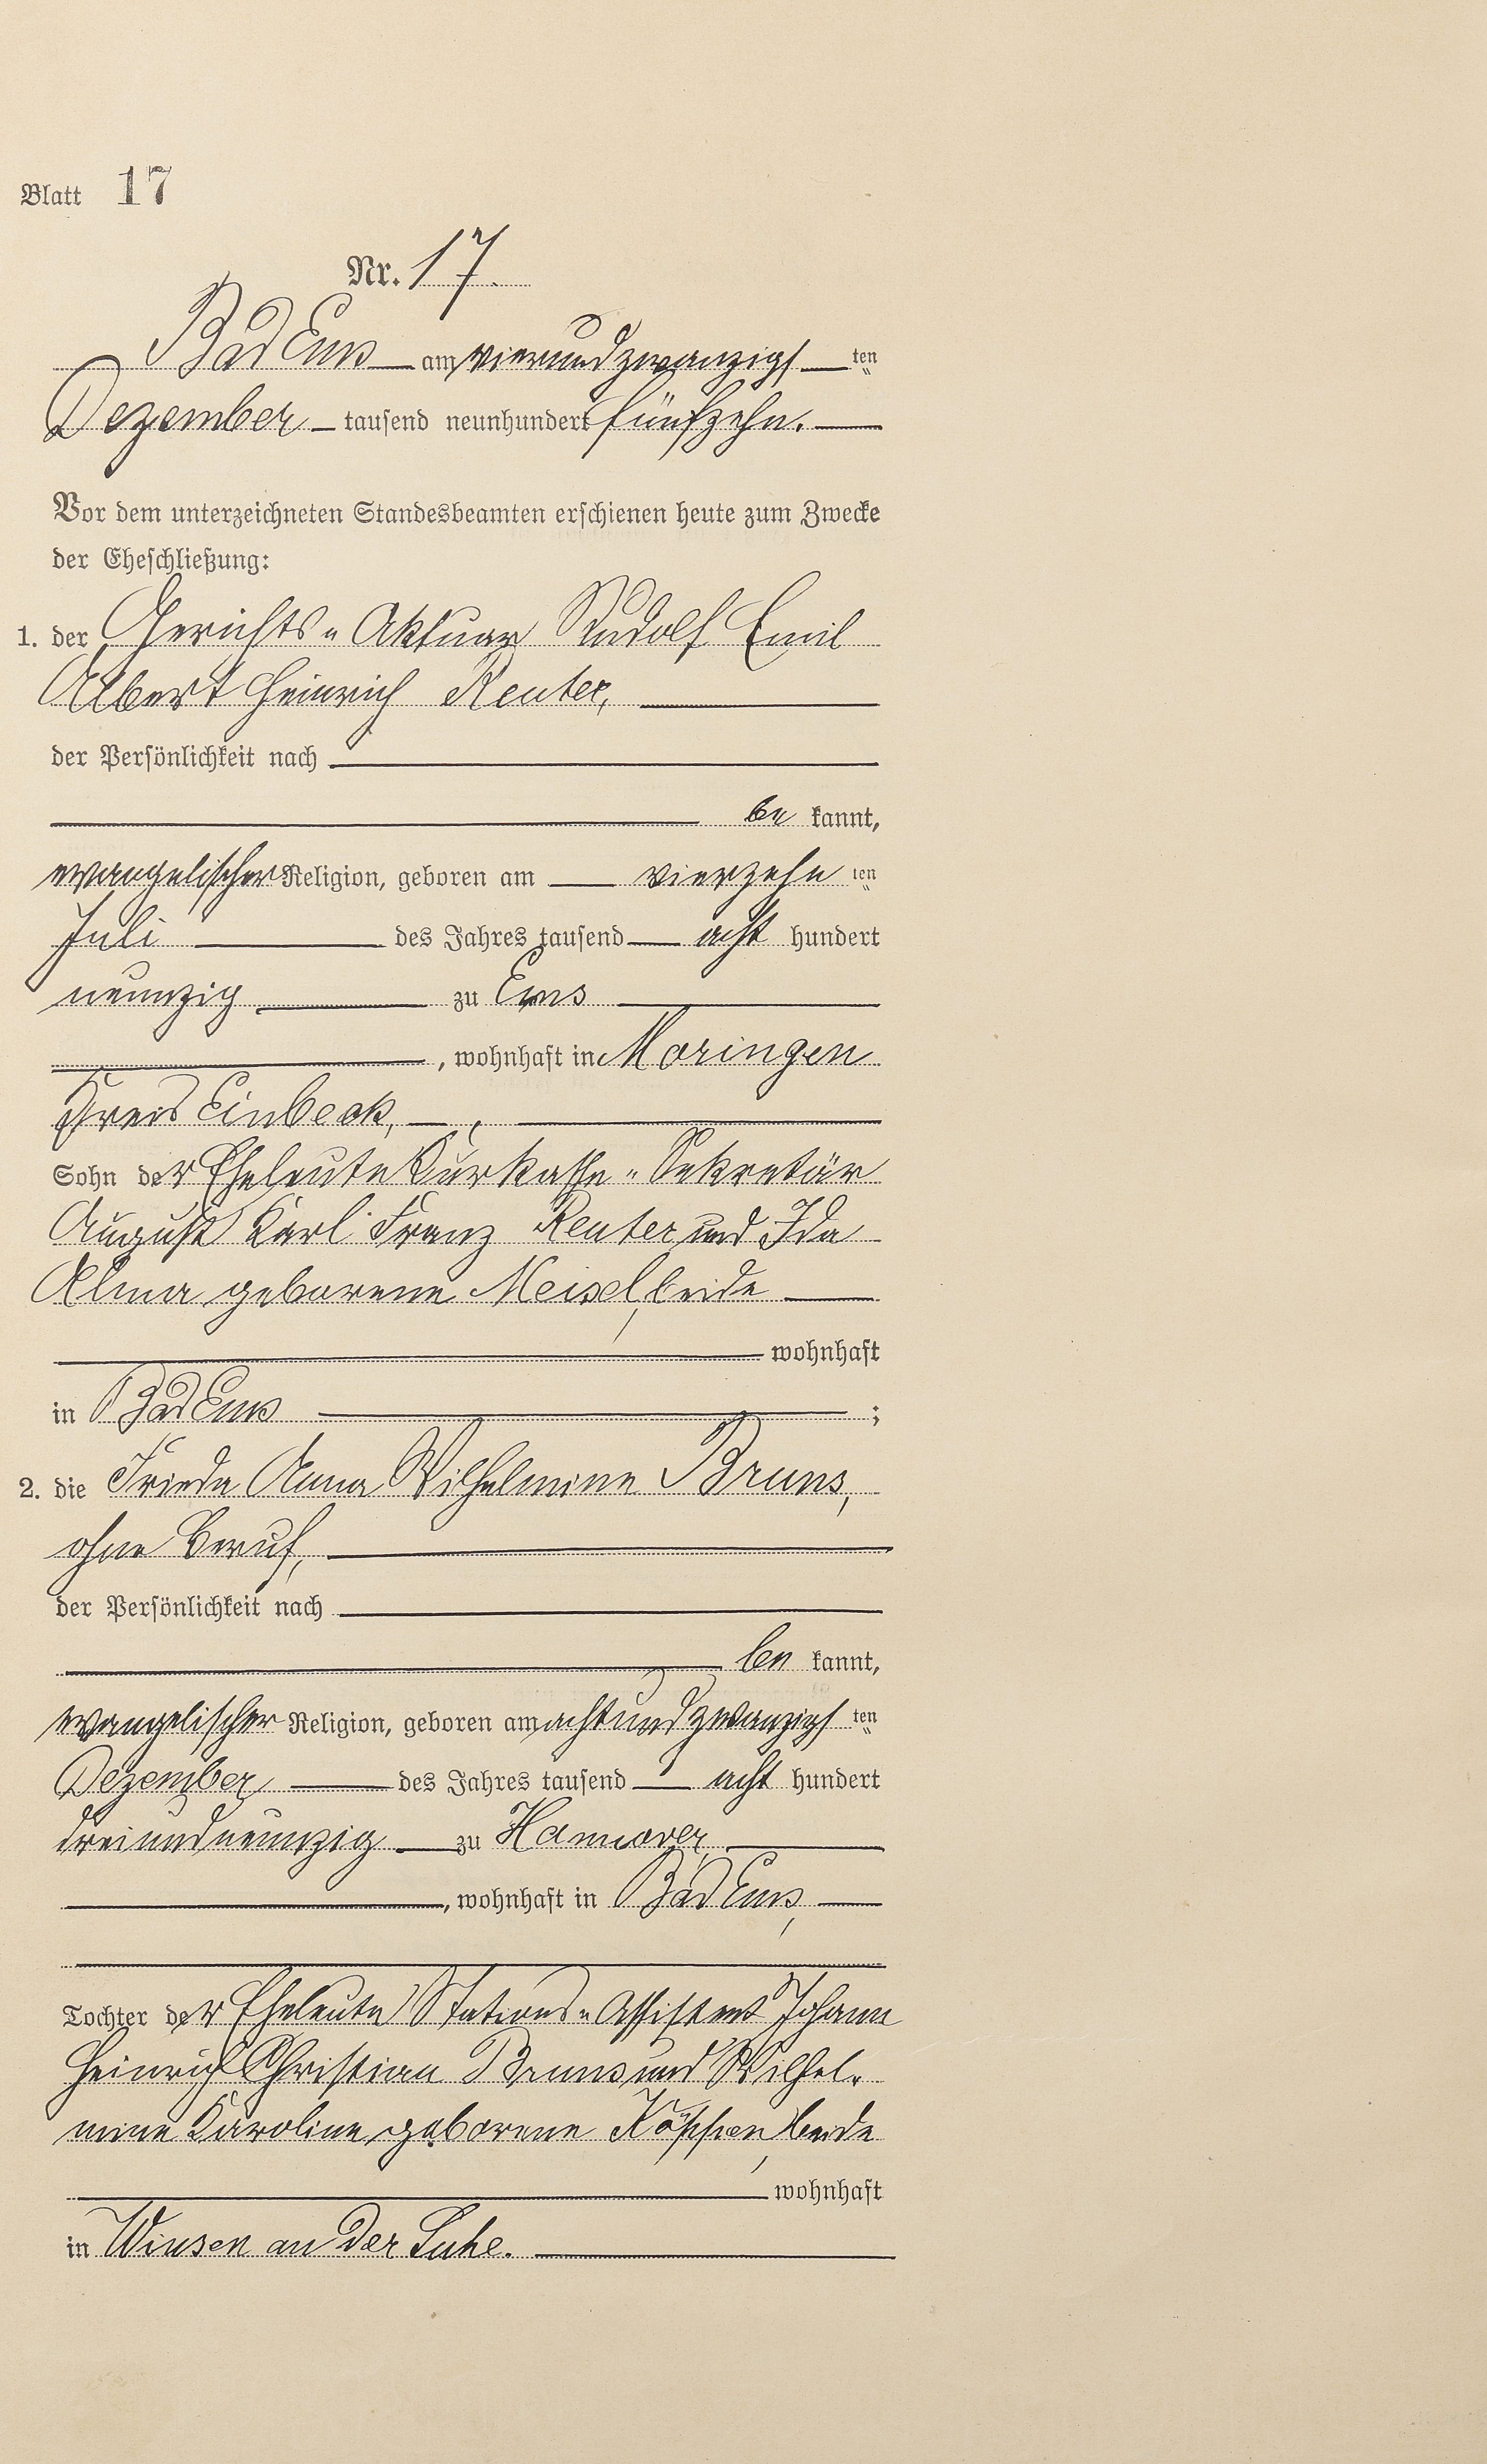 Blatt 17
Nr. 17.
Bad Ems am vierundzwanzigs ten
Dezember tausend neunhundert fünfzehn.
Vor dem unterzeichneten Standesbeamten erschienen heute zum Zwecke
der Eheschließung:
1. der Gerichts-Aktuar Rudolf Emil
Albert Heinrich Reuter,
der Persönlichkeit nach
be kannt,
evangelischer Religion, geboren am vierzehn ten
Juli des Jahres tausend acht hundert
neunzig zu Ems
, wohnhaft in Moringen
Kreis Einbeck,
Sohn der Eheleute Kurkasse-Sekretär
August Karl Franz Reuter und Ida
Alma geborene Meisel, beide
wohnhaft
in Bad Ems ;
2. die Frieda Anna Wilhelmine Bruns,
ohne Beruf,
der Persönlichkeit nach
be kannt,
evangelischer Religion, geboren am achtundzwanzigs ten
Dezember des Jahres tausend acht hundert
dreiundneunzig zu Hannover
, wohnhaft in Bad Ems,
Tochter der Eheleute Stations-Assistent Johann
Heinrich Christian Bruns und Wilhel-
mine Karoline geborene Köppen, beide
wohnhaft
in Winsen an der Luhe.